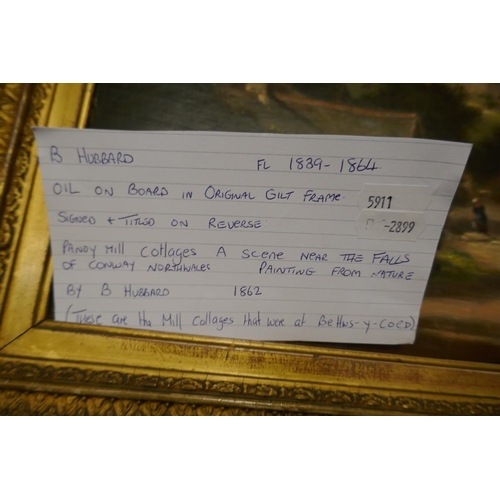 B HUBBARD FL 1839-1864.
OIL ON BOARD IN ORIGINAL GILT FRAME. 5911
SIGNED + TITLED ON REVERSE -2899
PANDY MILL COTTAGES A SCENE NEAR THE FALLS
OF CONWAY NORTHWALES PAINTING FROM NATURE
BY B HUBBARD 1862
(THESE are the Mill Cottages that were at Bettws-y-COED)